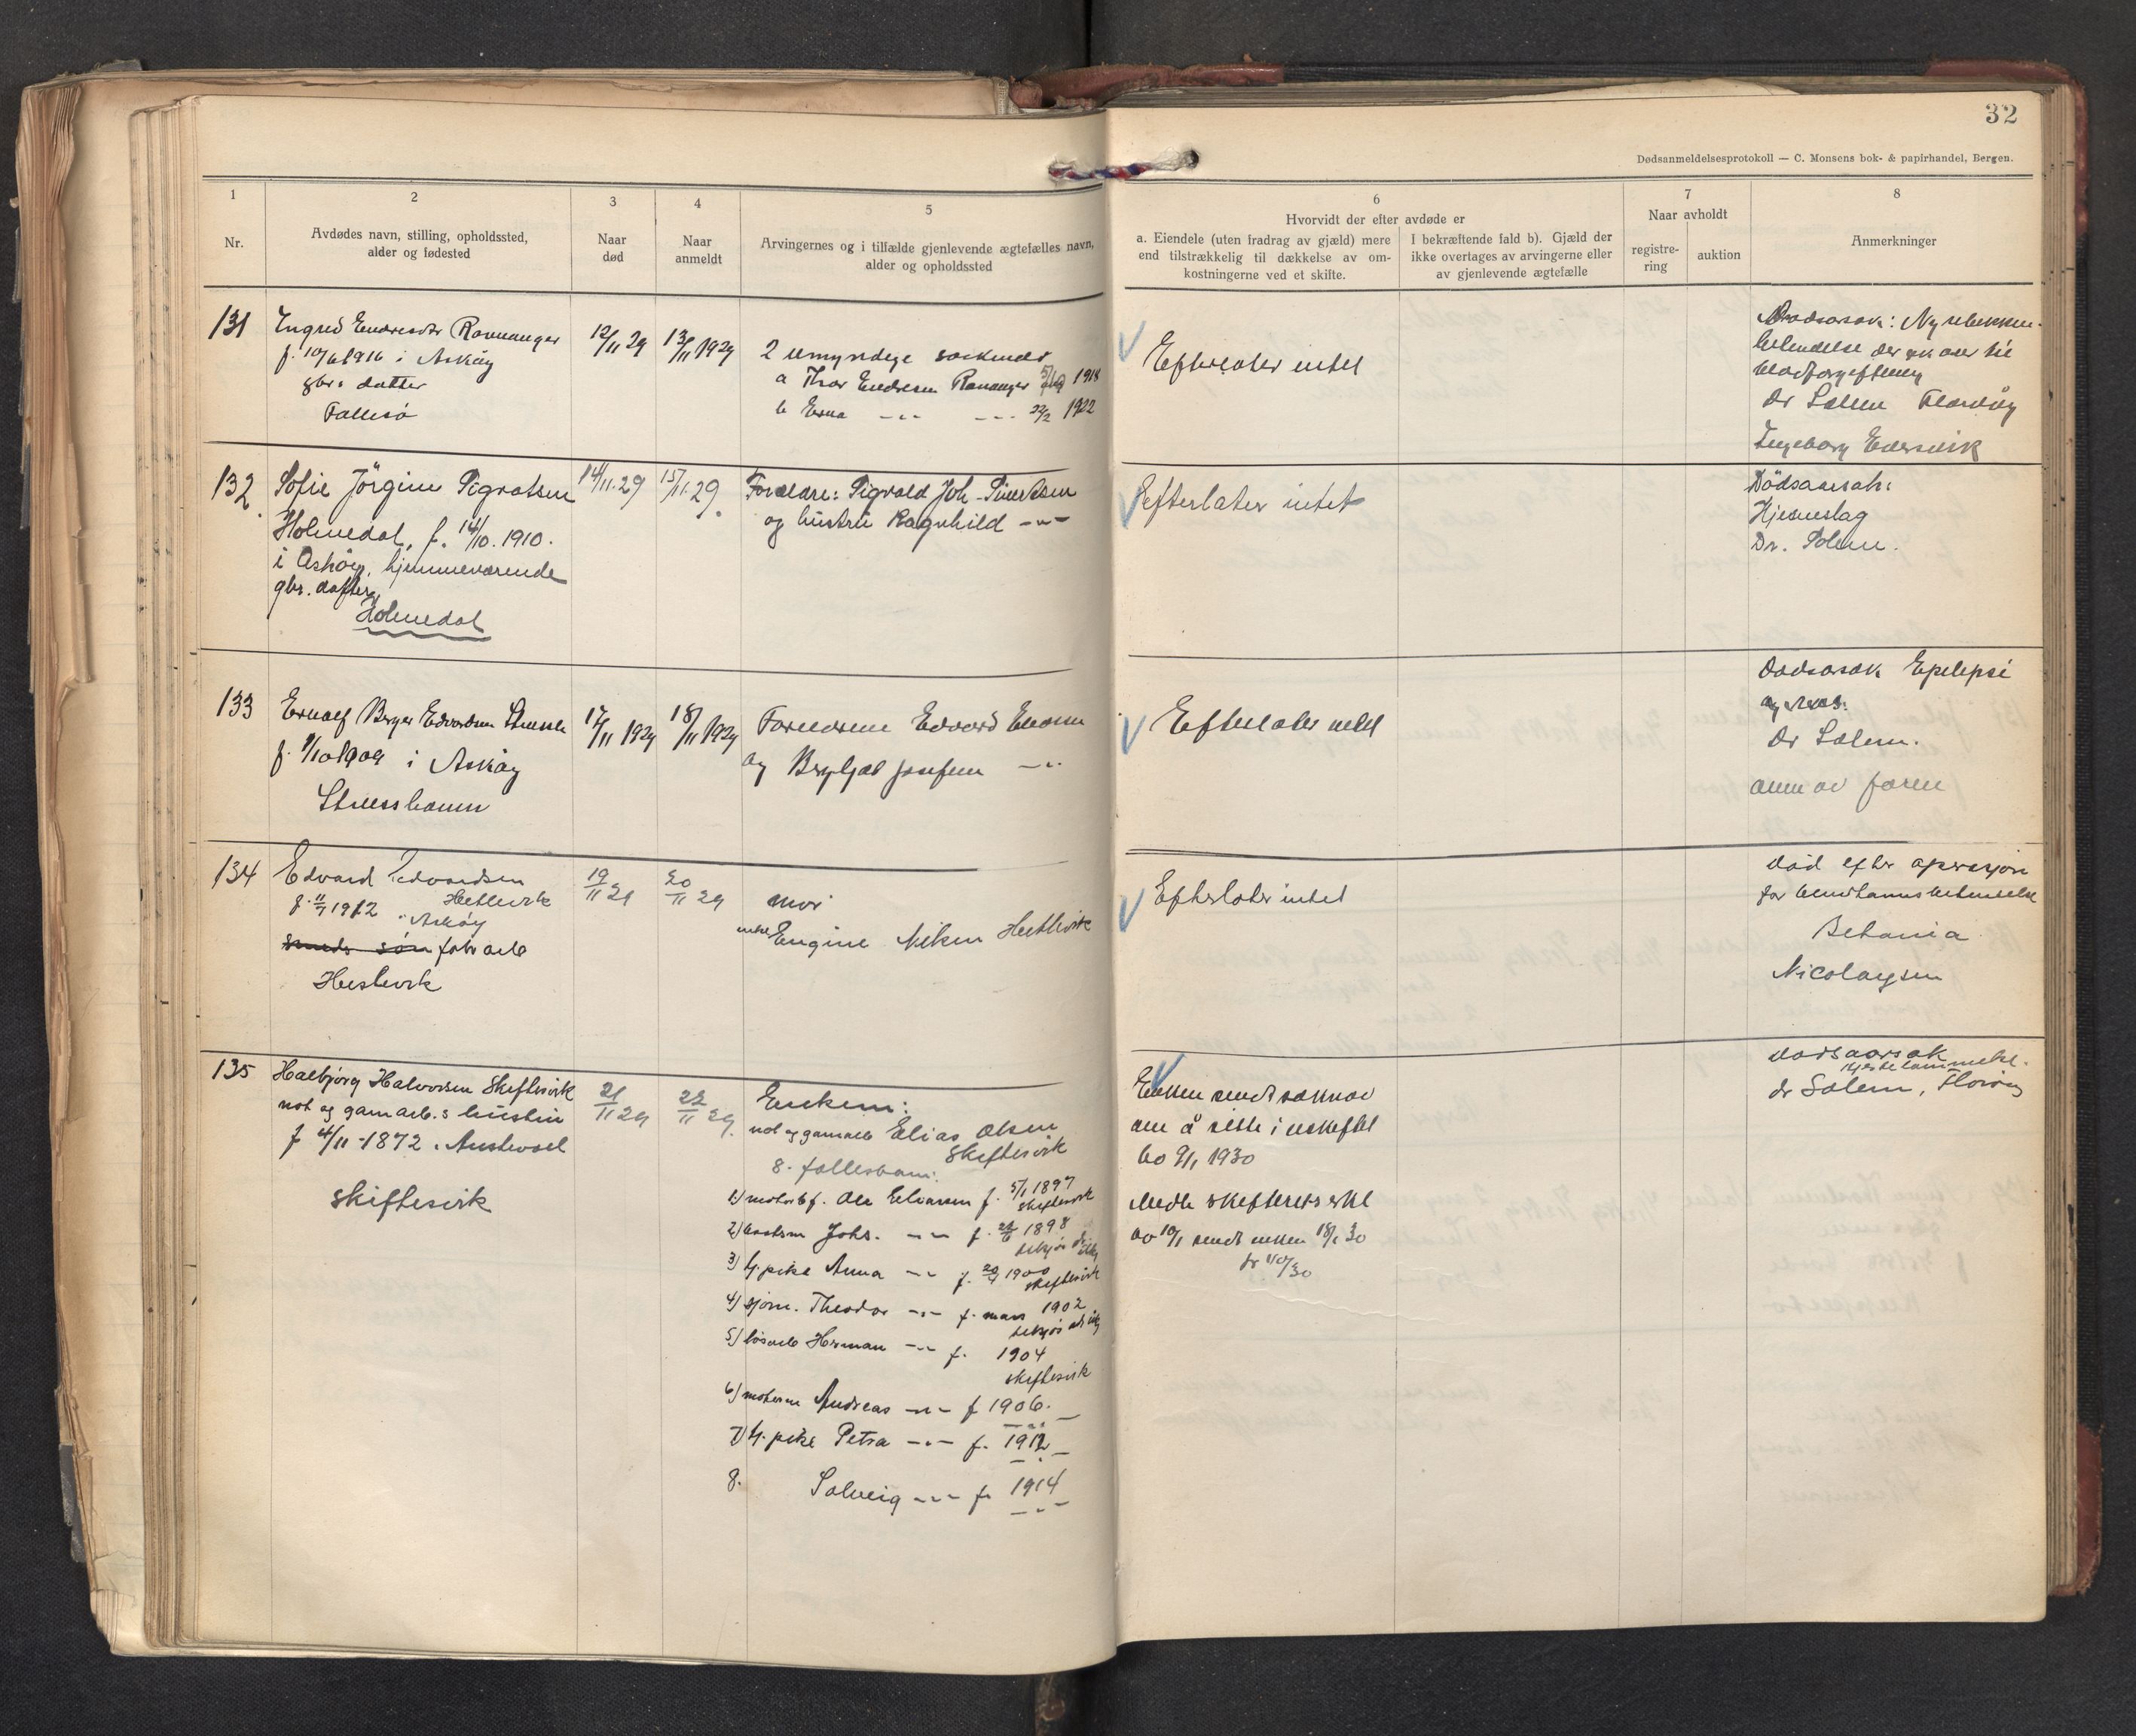 32
Dødsanmeldelsesprotokoll — C. Monsens bok- & papirhandel, Bergen.
1
Nr.
2
Avdødes navn, stilling, opholdssted,
alder og fødested
3
Naar
død
4
Naar
anmeldt
5
Arvingernes og i tilfælde gjenlevende ægtefælles navn,
alder og opholdssted
6
Hvorvidt der efter avdøde er
a. Eiendele (uten fradrag av gjæld) mere
end tilstrækkelig til dækkelse av om-
kostningerne ved et skifte.
I bekræftende fald b). Gjæld der
ikke overtages av arvingerne eller
av gjenlevende ægtefælle
7
Naar avholdt
registre-
ring
auktion
8
Anmerkninger
131
Ingrid Endresdtr Ravnanger
f. 10/6 1916 i Askøy
gbr. datter
Follesø
12/11 29
13/11 1929
2 umyndige søskende
a Thor Endresen Ravnanger 1918
b Erna -"- -"- 22/2 1922
Efterlater intet
Dødsårsak: Nyrebekken-
betendelse der gik over til
blodforgiftning
Dr Solem Florvåg
Ingeborg
132
Sofie Jörgine Sigvatsen
Holmedal, f. 14/10. 1910.
i Askøy, hjemmeværende
gbr. datter,
Holmedal
14/11.29
15/11.29.
Forældre: Sigvald Joh. Sivertsen
og hustru Ragnhild -"-
Efterlater intet
Dödsaarsak:
Hjerneslag
Dr. Solem.
133
Birger Edvardsen
f. 9/10 1909 i Askøy
Struss­hamn
17/11 1929
18/11 1929
Foreldrene Edvard
og -"-
Efterlater intet
Dødsårsak Epilepsi
Dr Solem.
anm av faren
134
Edvard Edvardsen
Hetlevik
f. 11/7 1912 i Askøy
smeds søn fabr arb
Hetlevik
19/11 29
20/11 29
mor
enke Engine Nilsen Hetlevik
Efterlater intet
død efter operasjon
for blindtarmsbetendelse
Betania
Nicolaysen
135
Halbjörg Halvorsen Skiftesvik
not og garnarb.s hustru
f 4/11 -1872 i Austevoll
Skiftesvik
21/11 29
22/11 29.
Enkem:
not og garnarb Elias Olsen
Skiftesvik
8. fellesbarn:
1) motorbf. Ole Eliassen f. 5/1 1897
Skiftesvik
2) Johs. -"- f. 1898
3) tj.pike Anna -"- f. 1900
Skiftesvik
4) sjøm. Theodor -"- f. mars 1902
5) løsarb Herman -"- f. 1904
Skiftesvik
6) Andreas -"- f 1906.
-"-
7) tj. pike Petra -"- f. 1912
-"-
8. Solveig -"- f. 1914
-"-
Enkem sendt søknad
om å sitte i uskiftet
bo 9/1 1930
Medt skifterettsskl
do 10/1 sendt enkem 18/1 30
dødsaarsak
hjertelammelse.
dr Solem, Florvåg